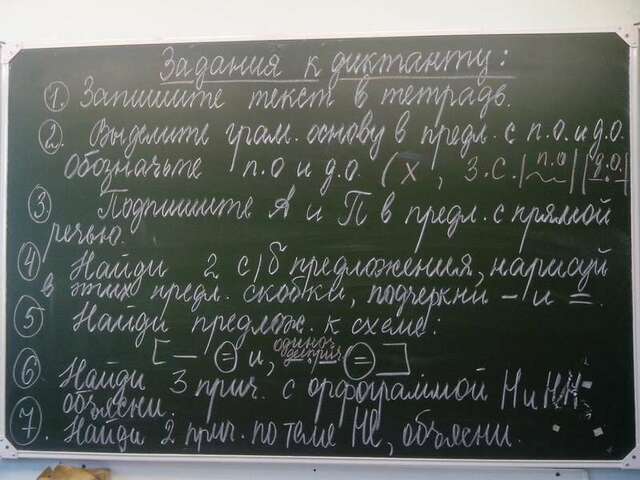 Задания к диктанту:
1. Запишите текст в тетрадь.
2. Выделите грам. основу в предл. с п.о. и д.о.
Обозначьте п.о и д.о. (х, з.с. |п.о| |д.о.|
3 Подпишите А и П в предл. с прямой
речью.
4 Найди 2 с/б предложения, нарисуй
в этих предл. скобки, подчеркни – и =.
5 Найди предлож. к схеме:
одиноч. дееприч.
[ — (=) и, , (=) ]
6 Найди 3 прич. с орфограммой Н и НН
объясни.
7. Найди 2 прич. по теме НЕ, объясни.